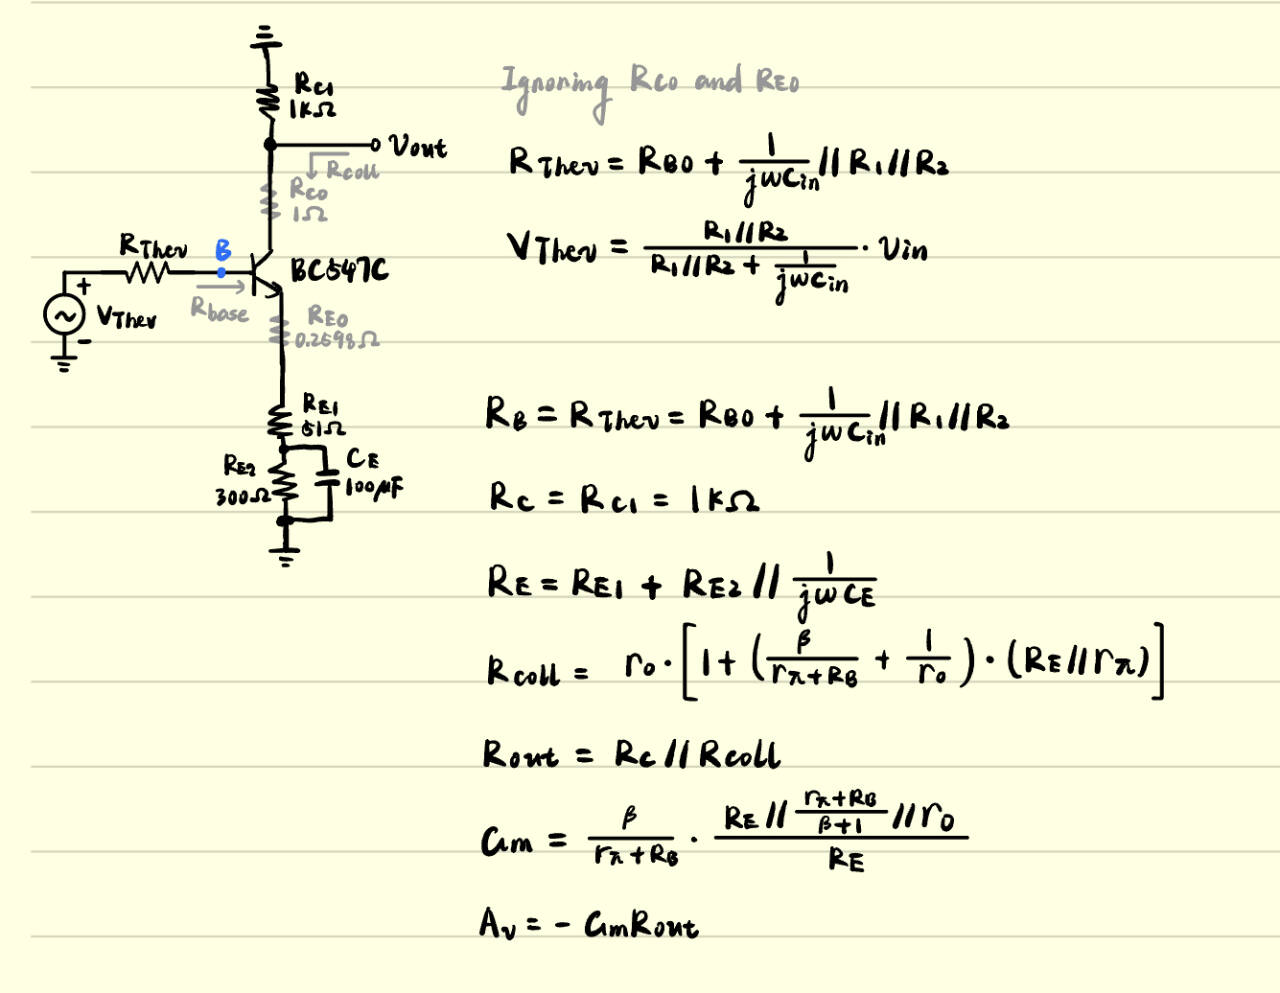 Rc1
1kΩ
Vout
Rcoll
Rco
1Ω
RThev
B
BC547C
+
VThev
-
Rbase
REO
0.2598Ω
RE1
51Ω
RE2
300Ω
CE
100μF
Ignoring Rco and REO
RThev = RBO + 1/(jωCin) // R1 // R2
VThev = (R1//R2)/(R1//R2 + 1/(jωCin)) · Vin
RB = RThev = RBO + 1/(jωCin) // R1 // R2
Rc = Rc1 = 1kΩ
RE = RE1 + RE2 // 1/(jωCE)
Rcoll = ro · [1 + (β/(rπ+RB) + 1/ro) · (RE // rπ)]
Rout = Rc // Rcoll
Gm = β/(rπ+RB) · (RE // (rπ+RB)/(β+1) // ro)/RE
Av = - GmRout